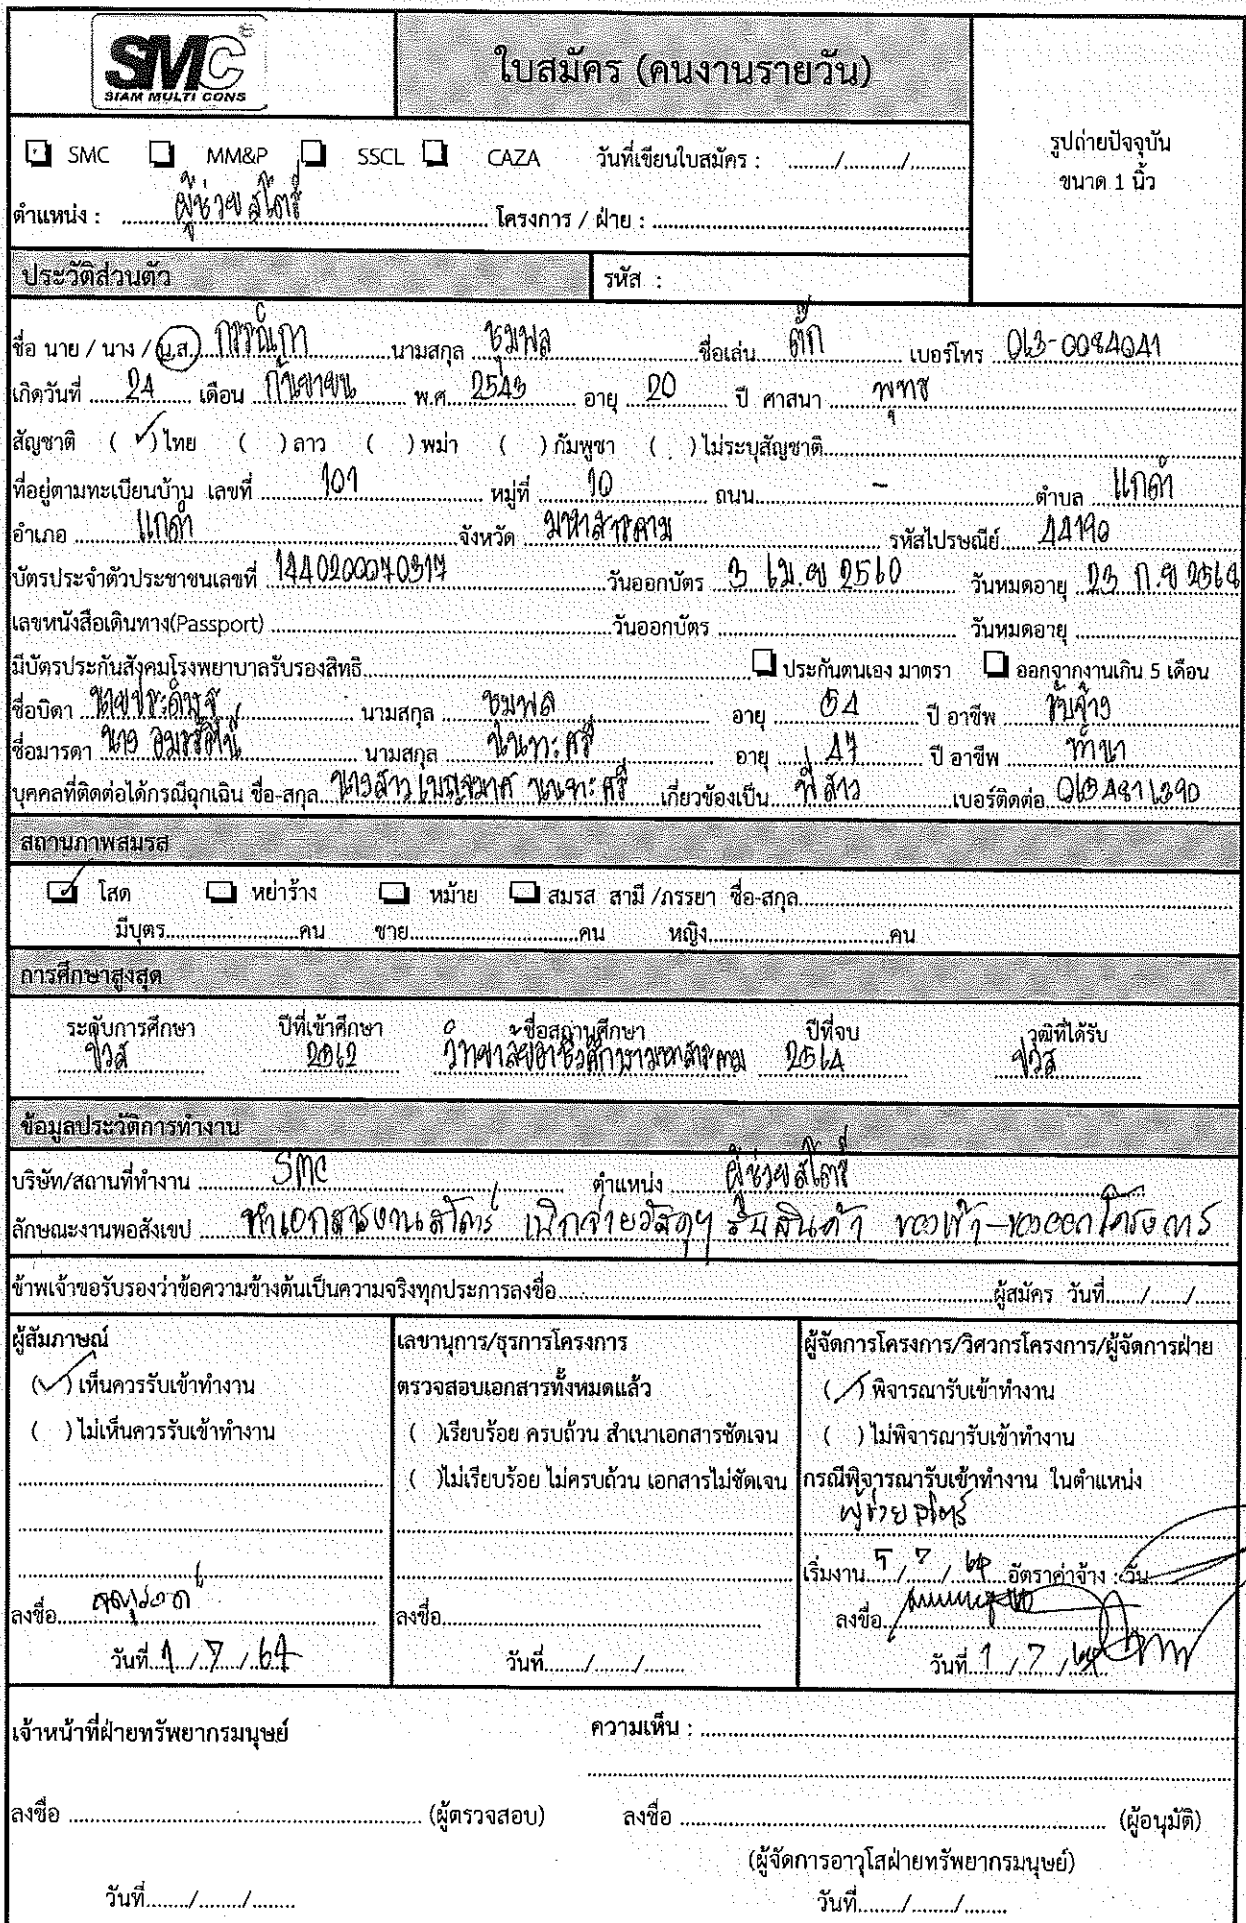 SMC
SIAM MULTI CONS
ใบสมัคร (คนงานรายวัน)
รูปถ่ายปัจจุบัน
ขนาด 1 นิ้ว
SMC MM&P SSCL CAZA วันที่เขียนใบสมัคร : ......../........../..........
ตำแหน่ง : ผู้ช่วยสโตร์ โครงการ / ฝ่าย :
ประวัติส่วนตัว รหัส :
ชื่อ นาย / นาง / น.ส. กรรณิกา นามสกุล ชุมพล ชื่อเล่น ตั๊ก เบอร์โทร 063-0084041
เกิดวันที่ 24 เดือน กันยายน พ.ศ. 2543 อายุ 20 ปี ศาสนา พุทธ
สัญชาติ ( ✓ ) ไทย ( ) ลาว ( ) พม่า ( ) กัมพูชา ( ) ไม่ระบุสัญชาติ
ที่อยู่ตามทะเบียนบ้าน เลขที่ 101 หมู่ที่ 10 ถนน - ตำบล แกดำ
อำเภอ แกดำ จังหวัด มหาสารคาม รหัสไปรษณีย์ 44190
บัตรประจำตัวประชาชนเลขที่ 1440200070317 วันออกบัตร 3 เม.ย 2560 วันหมดอายุ 23 ก.ย 2568
เลขหนังสือเดินทาง(Passport) วันออกบัตร วันหมดอายุ
มีบัตรประกันสังคมโรงพยาบาลรับรองสิทธิ ประกันตนเอง มาตรา ออกจากงานเกิน 5 เดือน
ชื่อบิดา นามสกุล ชุมพล อายุ 54 ปี อาชีพ รับจ้าง
ชื่อมารดา นาง อมรรัตน์ นามสกุล นันทะศรี อายุ 47 ปี อาชีพ ทำนา
บุคคลที่ติดต่อได้กรณีฉุกเฉิน ชื่อ-สกุล นางสาว เบญจมาศ นนทะศรี เกี่ยวข้องเป็น พี่สาว เบอร์ติดต่อ 0634811390
สถานภาพสมรส
โสด หย่าร้าง หม้าย สมรส สามี /ภรรยา ชื่อ-สกุล
มีบุตร คน ชาย คน หญิง คน
การศึกษาสูงสุด
ระดับการศึกษา ปีที่เข้าศึกษา ชื่อสถานศึกษา ปีที่จบ วุฒิที่ได้รับ
ปวส 2562 วิทยาลัยอาชีวศึกษามหาสารคาม 2564 ปวส
ข้อมูลประวัติการทำงาน
บริษัท/สถานที่ทำงาน SMC ตำแหน่ง ผู้ช่วยสโตร์
ลักษณะงานพอสังเขป ทำเอกสารงานสโตร์ เบิกจ่ายวัสดุฯ รับสินค้า ของเข้า-ของออกโครงการ
ข้าพเจ้าขอรับรองว่าข้อความข้างต้นเป็นความจริงทุกประการลงชื่อ ผู้สมัคร วันที่ ....../....../......
ผู้สัมภาษณ์
( ✓ ) เห็นควรรับเข้าทำงาน
( ) ไม่เห็นควรรับเข้าทำงาน
ลงชื่อ
วันที่ 1 / 7 / 64
เลขานุการ/ธุรการโครงการ
ตรวจสอบเอกสารทั้งหมดแล้ว
( )เรียบร้อย ครบถ้วน สำเนาเอกสารชัดเจน
( )ไม่เรียบร้อย ไม่ครบถ้วน เอกสารไม่ชัดเจน
ลงชื่อ
วันที่ ......../......../........
ผู้จัดการโครงการ/วิศวกรโครงการ/ผู้จัดการฝ่าย
( ✓ ) พิจารณารับเข้าทำงาน
( ) ไม่พิจารณารับเข้าทำงาน
กรณีพิจารณารับเข้าทำงาน ในตำแหน่ง
ผู้ช่วยสโตร์
เริ่มงาน 5 / 7 / 64 อัตราค่าจ้าง : วัน
ลงชื่อ
วันที่ 1 / 7 / 64
เจ้าหน้าที่ฝ่ายทรัพยากรมนุษย์ ความเห็น :
ลงชื่อ (ผู้ตรวจสอบ) ลงชื่อ (ผู้อนุมัติ)
(ผู้จัดการอาวุโสฝ่ายทรัพยากรมนุษย์)
วันที่ ......../......../........ วันที่ ......../......../........